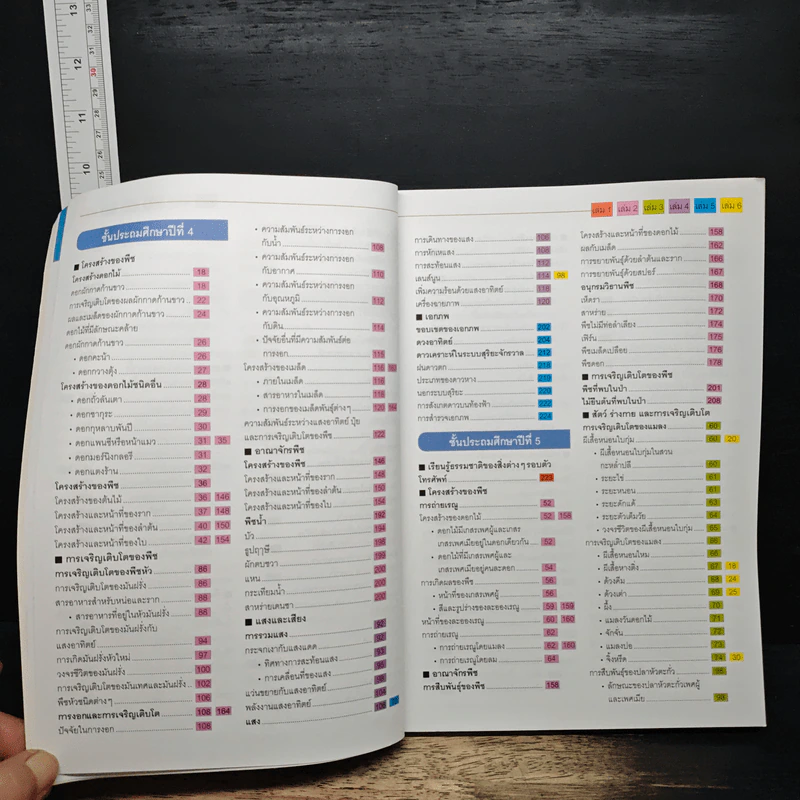 12
11
10
33
32
31
30
29
28
27
26
25
ชั้นประถมศึกษาปีที่ 4
■ โครงสร้างของพืช
โครงสร้างดอกไม้ 18
ดอกผักกาดก้านขาว 18
การเจริญเติบโตของผลผักกาดก้านขาว 22
ผลและเมล็ดของผักกาดก้านขาว 24
ดอกไม้ที่มีลักษณะคล้าย
ดอกผักกาดก้านขาว 26
• ดอกคะน้า 26
• ดอกกวางตุ้ง 27
โครงสร้างของดอกไม้ชนิดอื่น 28
• ดอกถั่วลันเตา 28
• ดอกซากุระ 29
• ดอกกุหลาบพันปี 30
• ดอกแพนซีหรือหน้าแมว 31 35
• ดอกมอร์นิงกลอรี 31
• ดอกแตงร้าน 32
โครงสร้างของพืช 36
โครงสร้างของต้นไม้ 36 146
โครงสร้างและหน้าที่ของราก 37 148
โครงสร้างและหน้าที่ของลำต้น 40 150
โครงสร้างและหน้าที่ของใบ 42 154
■ การเจริญเติบโตของพืช
การเจริญเติบโตของพืชหัว 86
การเจริญเติบโตของมันฝรั่ง 86
สารอาหารสำหรับหน่อและราก 88
• สารอาหารที่อยู่ในหัวมันฝรั่ง 88
การเจริญเติบโตของมันฝรั่งกับ
แสงอาทิตย์ 94
การเกิดมันฝรั่งหัวใหม่ 97
วงจรชีวิตของมันฝรั่ง 100
การเจริญเติบโตของมันเทศและมันฝรั่ง 102
พืชหัวชนิดต่างๆ 106
การงอกและการเจริญเติบโต 108 164
ปัจจัยในการงอก 108
• ความสัมพันธ์ระหว่างการงอก
กับน้ำ 108
• ความสัมพันธ์ระหว่างการงอก
กับอากาศ 110
• ความสัมพันธ์ระหว่างการงอก
กับอุณหภูมิ 112
• ความสัมพันธ์ระหว่างการงอก
กับดิน 114
• ปัจจัยอื่นที่มีความสัมพันธ์ต่อ
การงอก 115
โครงสร้างของเมล็ด 116
• ภายในเมล็ด 116
• สารอาหารในเมล็ด 118
• การงอกของเมล็ดพันธุ์ต่างๆ 120
ความสัมพันธ์ระหว่างแสงอาทิตย์ ปุ๋ย
และการเจริญเติบโตของพืช 122
■ อาณาจักรพืช
โครงสร้างของพืช 146
โครงสร้างและหน้าที่ของราก 148
โครงสร้างและหน้าที่ของลำต้น 150
โครงสร้างและหน้าที่ของใบ 154
พืชน้ำ 192
บัว 194
ธูปฤๅษี 198
ผักตบชวา 199
แหน 200
กระเทียมน้ำ 200
สาหร่ายเดนซา 200
■ แสงและเสียง
การรวมแสง 92
กระจกเงากับแสงแดด 92
• ทิศทางการสะท้อนแสง 93
• การเคลื่อนที่ของแสง 95
แว่นขยายกับแสงอาทิตย์ 104
พลังงานแสงอาทิตย์ 106
แสง
เล่ม 1 เล่ม 2 เล่ม 3 เล่ม 4 เล่ม 5 เล่ม 6
การเดินทางของแสง 106
การหักเหแสง 108
การสะท้อนแสง 112
เลนส์นูน 114 98
เพิ่มความร้อนด้วยแสงอาทิตย์ 118
เครื่องฉายภาพ 120
■ เอกภพ
ขอบเขตของเอกภพ 202
ดวงอาทิตย์ 204
ดาวเคราะห์ในระบบสุริยะจักรวาล 212
ฝนดาวตก 218
ประเภทของดาวหาง 219
นอกระบบสุริยะ 220
การสังเกตดาวบนท้องฟ้า 222
การสำรวจเอกภพ 224
ชั้นประถมศึกษาปีที่ 5
■ เรียนรู้ธรรมชาติของสิ่งต่างๆ รอบตัว
โทรศัพท์ 223
■ โครงสร้างของพืช
การถ่ายเรณู 52
โครงสร้างของดอกไม้ 52 158
• ดอกไม้มีเกสรเพศผู้และเกสร
เกสรเพศเมียอยู่ในดอกเดียวกัน 52
• ดอกไม้ที่มีเกสรเพศผู้และ
เกสรเพศเมียอยู่คนละดอก 54
การเกิดผลของพืช 56
• หน้าที่ของเกสรเพศผู้ 56
• สีและรูปร่างของละอองเรณู 59 159
หน้าที่ของละอองเรณู 60 160
การถ่ายเรณู 62
• การถ่ายเรณูโดยแมลง 62 160
• การถ่ายเรณูโดยลม 64
■ อาณาจักรพืช
การสืบพันธุ์ของพืช 158
โครงสร้างและหน้าที่ของดอกไม้ 158
ผลกับเมล็ด 162
การขยายพันธุ์ด้วยลำต้นและราก 166
การขยายพันธุ์ด้วยสปอร์ 167
อนุกรมวิธานพืช 168
เห็ดรา 170
สาหร่าย 172
พืชไม่มีท่อลำเลียง 174
เฟิร์น 175
พืชเมล็ดเปลือย 176
พืชดอก 178
■ การเจริญเติบโตของพืช
พืชที่พบในป่า 201
ไม้ยืนต้นที่พบในป่า 208
■ สัตว์ ร่างกาย และการเจริญเติบโต
การเจริญเติบโตของแมลง 60
ผีเสื้อหนอนใบกุ่ม 60 20
• ผีเสื้อหนอนใบกุ่มในสวน
กะหล่ำปลี 60
• ระยะไข่ 61
• ระยะหนอน 61
• ระยะดักแด้ 63
• ระยะตัวเต็มวัย 64
• วงจรชีวิตของผีเสื้อหนอนใบกุ่ม 65
การเจริญเติบโตของแมลง 66
• ผีเสื้อหนอนไหม 66
• ผีเสื้อหางติ่ง 67 18
• ด้วงคีม 68 24
• ด้วงเต่า 69 25
• ผึ้ง 70
• แมลงวันดอกไม้ 71
• จักจั่น 72
• แมลงปอ 73
• จิ้งหรีด 74 30
การสืบพันธุ์ของปลาหางตะกั่ว
• ลักษณะของปลาหัวตะกั่วเพศผู้
และเพศเมีย 98